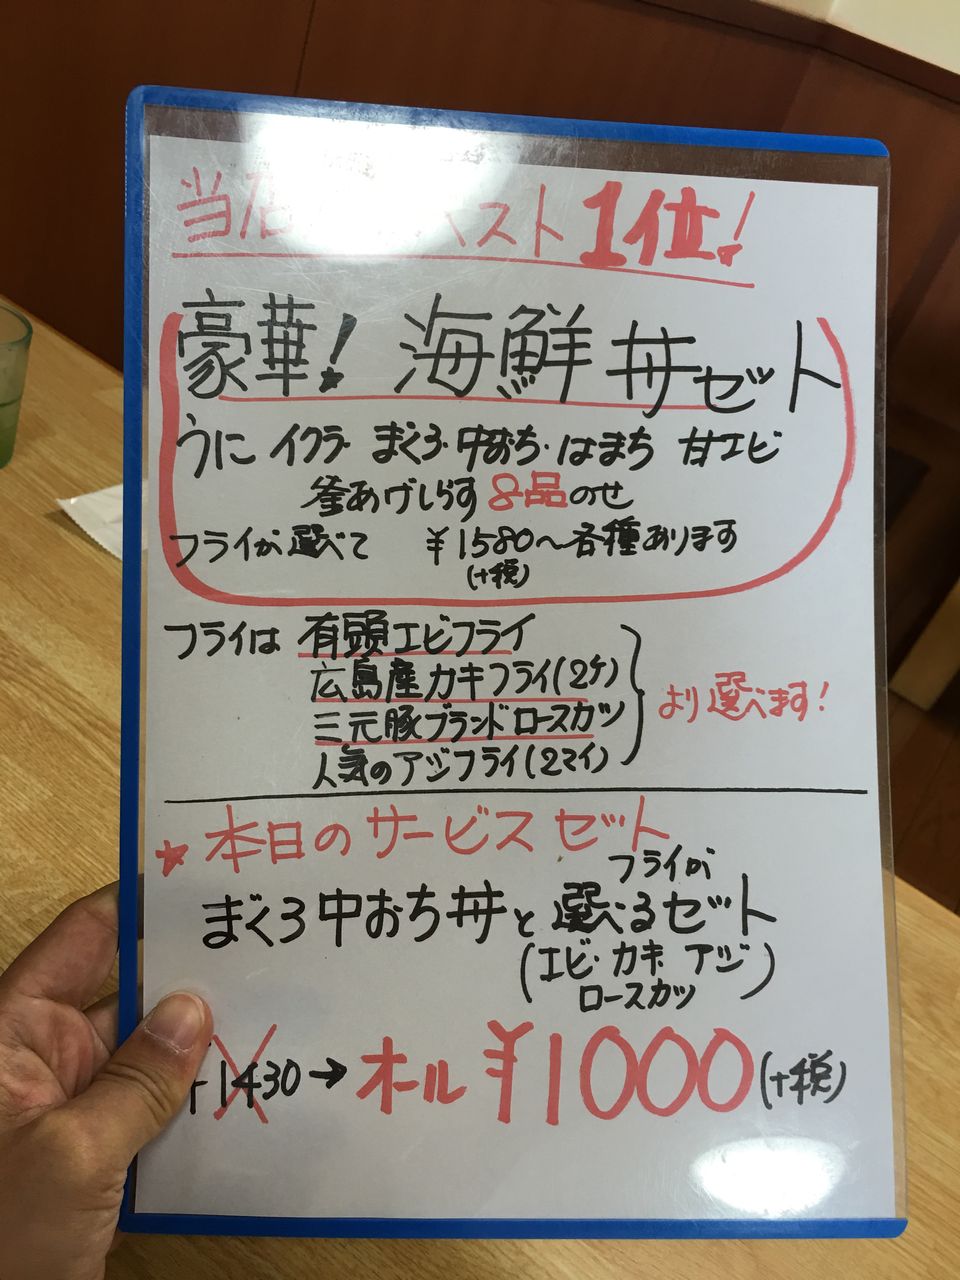 当店 ベスト1位!
豪華! 海鮮丼セット
うに イクラ まぐろ・中おち・はまち 甘エビ
釜あげしらす 8品のせ
フライが選べて ¥1580〜各種あります
(+税)
フライは 有頭エビフライ
広島産カキフライ(2ケ)
三元豚ブランドロースカツ
人気のアジフライ(2マイ)
より選べます!
★本日のサービスセット
フライが
まぐろ中おち丼と選べるセット
(エビ・カキ アジ
ロースカツ)
1430→オール¥1000(+税)